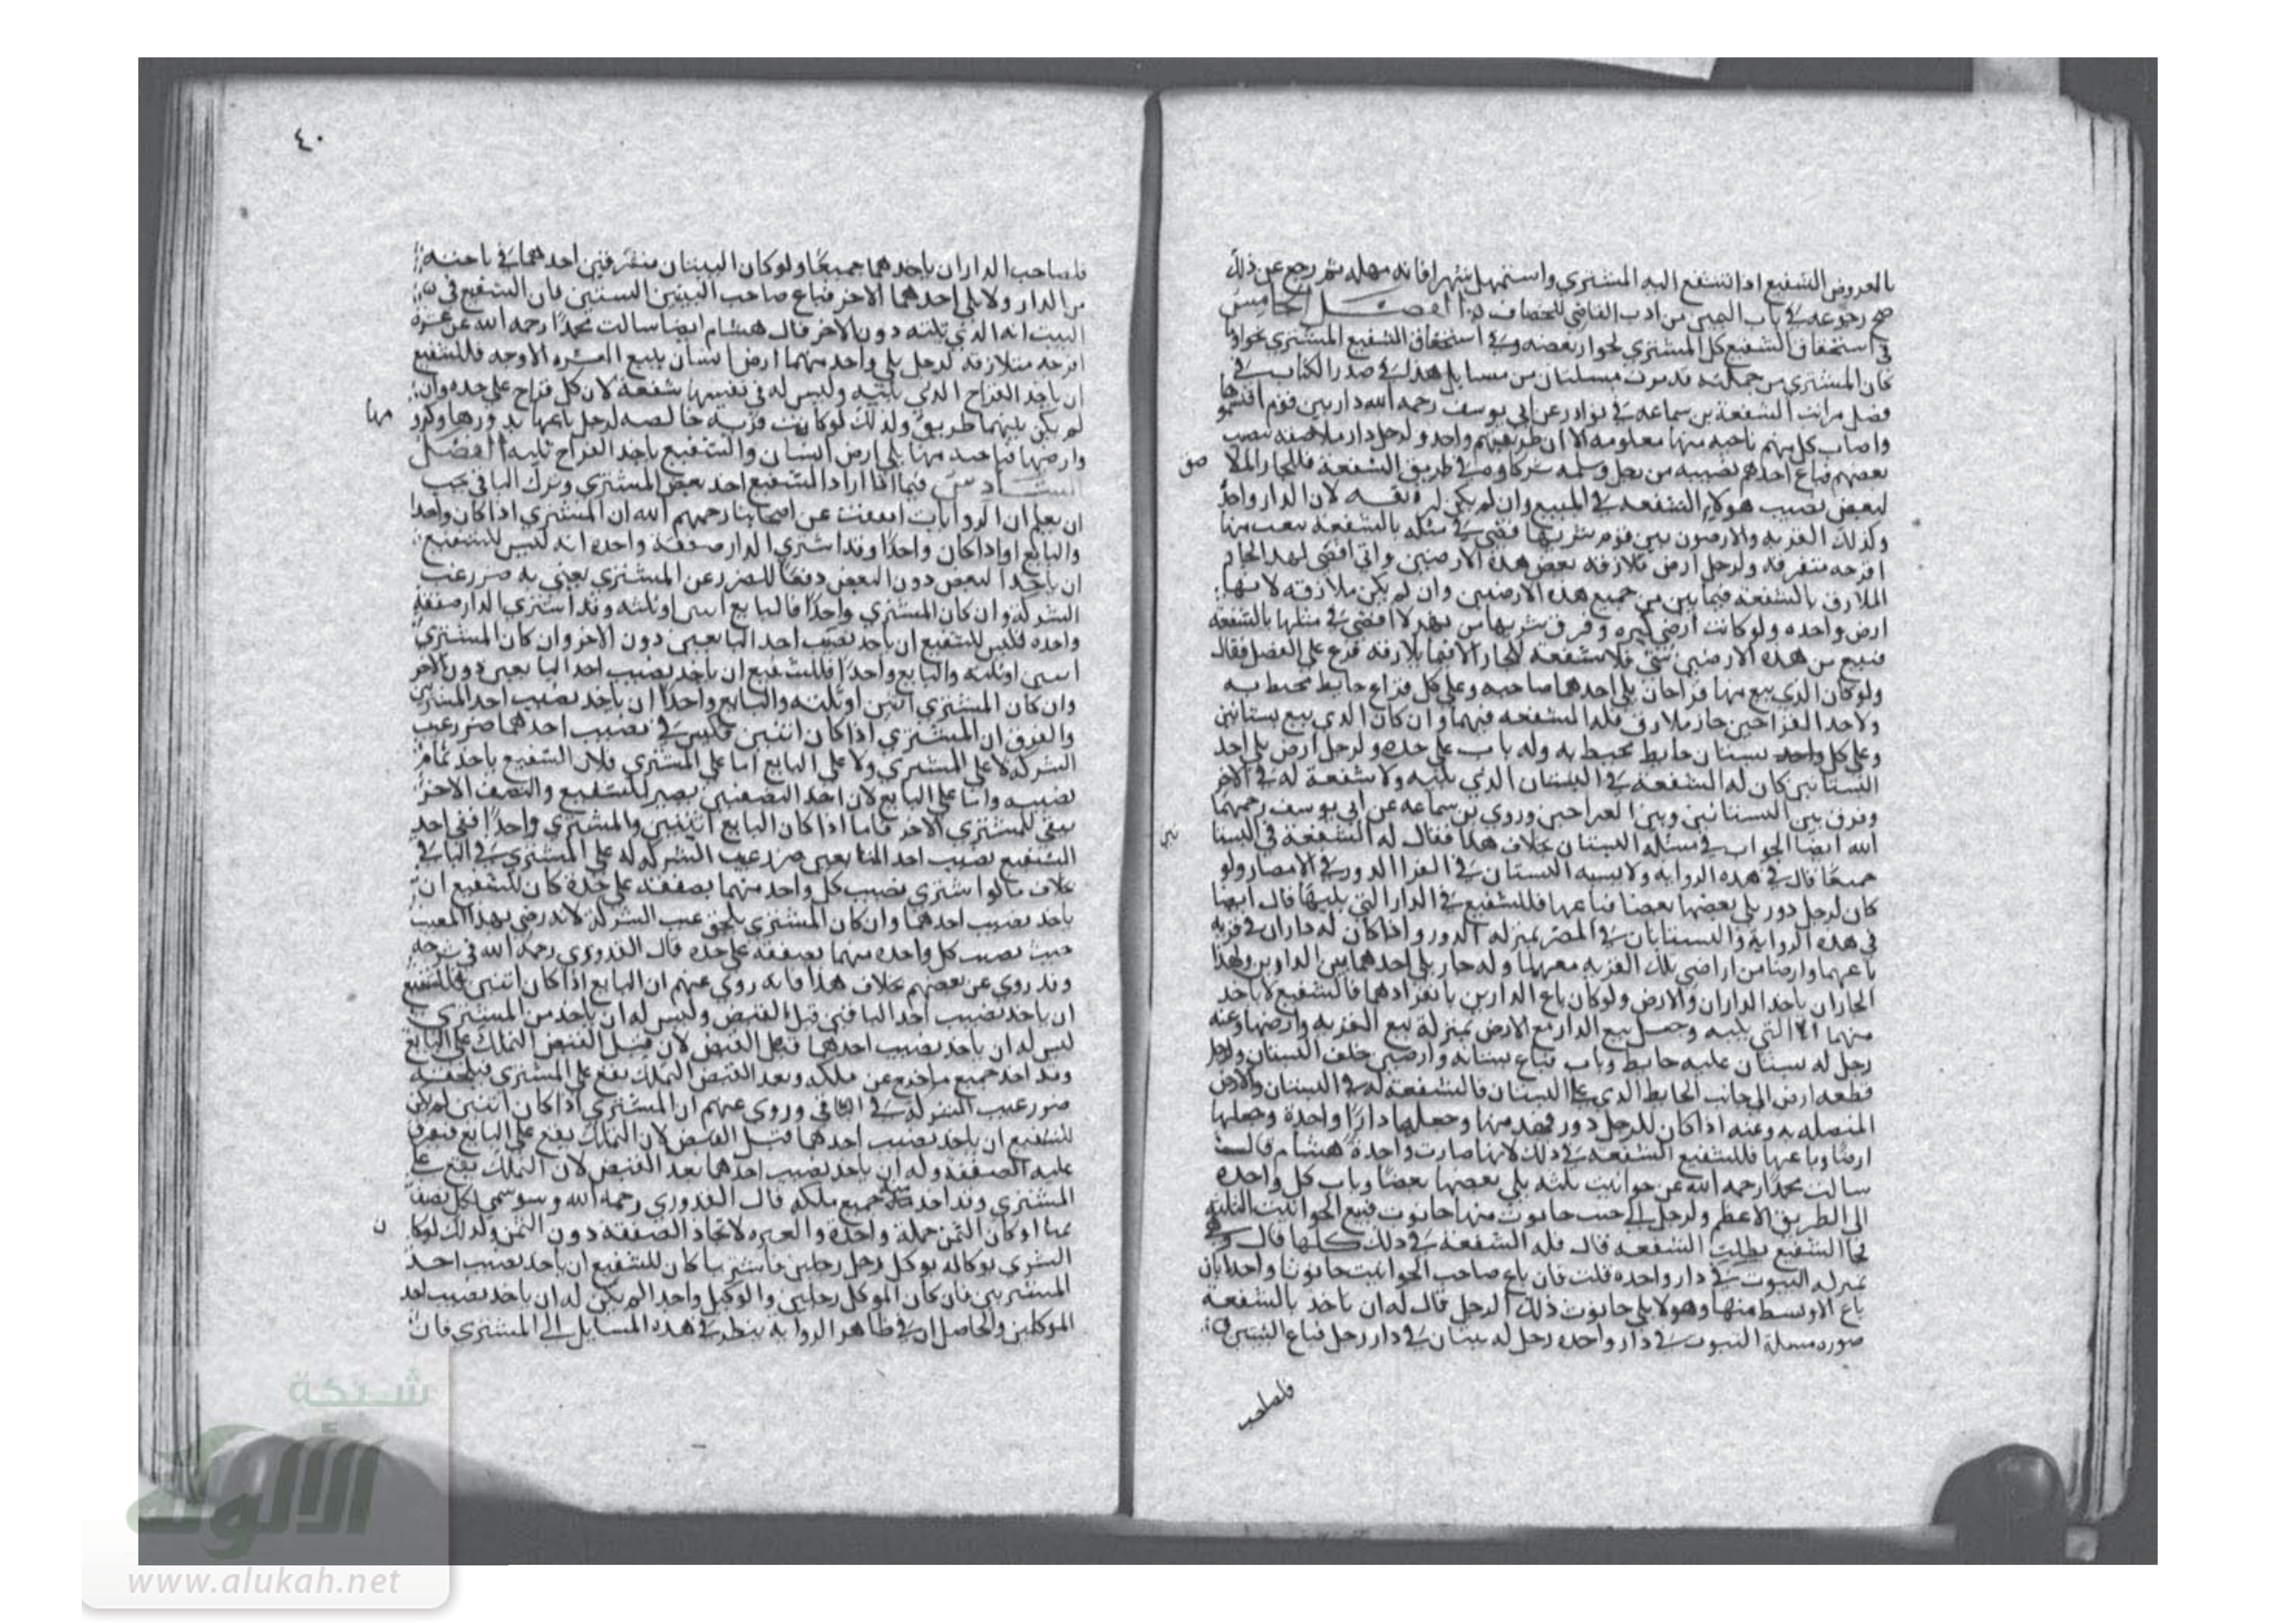 بالعروض الشفيع اذا الشفع اليه المشتري واستمهل شهرا فانه مهله ثم رجع عن ذلك
صح رجوعه في باب من ادب القاضي للخصاف الفصل الخامس
في استحقاق الشفيع كل المشتري لجوار بعضه وفي استحقاق الشفيع المشتري
كان المشتري من جملته قد مرت مسلتان من مسايل هذا في صدر الكتاب في
فصل مراتب الشفعة بن سماعه في نوادر عن ابي يوسف رحمه الله دار بين قوم اقتسموها
واصاب كل منهم ناحيه منها معلومه الا ان طريقهم واحد ولرجل دار ملاصقه نصيب
بعضهم فباع احدهم نصيبه من رجل شركاوه في طريق الشفعة فللجار الملا صق
لبعض نصيب هولاء الشفعه في المبيع وان لم يكن لان الدار واحد
وكذلك القريه والارضون بين قوم شربها في مثله بالشفعة
اقرحه متفرقه ولرجل ارض ملازقه بعض هذه الارضين واني اقضى لهذا الجار
الملازق بالشفعه فيما بين من جميع هذه الارضين وان لم يكن ملازقه لانها
ارض واحده ولو كانت ارضي كبيره وفرق شربها من نهر لا اقضي في مثلها بالشفعه
فبيع من هذه الارضين شي فلا شفعه للجار الا فيما يلازقه فرع على الفصل فقال
ولو كان الذي بيع منها قراحان يلي احدهما صاحبه وعلى كل قراح حايط محيط به
ولاحد القراحين جار ملازق فله الشفعه فيهما وان كان الذي بيع بستانين
وعلى كل واحد بستان حايط محيط به وله باب على حده ولرجل ارض يلي احد
البستانين كان له الشفعة في البستان الذي يليه ولا شفعة له في الاخر
وفرق بين البستانين وبين القراحين وروي بن سماعه عن ابي يوسف رحمهما
الله ايضا الجواب في مسله البستان بخلاف هذا فقال له الشفعة في البستا نين
جميعا قال في هذه الروايه ولا يشبه البستان في القرا الدور في الامصار ولو
كان لرجل دور يلي بعضها بعضا فباعها فللشفيع في الدار التي يليها قال ايضا
في هذه الروايه والبستانان في المصر بمنزله الدور واذا كان له داران في قريه
باعهما وارضا من اراضي تلك القريه معهما وله جار يلي احدهما بين الدارين ولهذا
الجار ان ياخذ الداران والارض ولو كان باع الدارين بانفرادهما فالشفيع لا ياخذ
منهما الا التي يليه وجعل بيع الدار مع الارض بمنزلة بيع القريه وارضها وعنه
رجل له بستان عليه حايط وباب فباع بستانه وارضين خلف البستان ولرجل
قطعه ارض الى جانب الحايط الذي على البستان فالشفعه له في البستان والارض
المتصله به وعنه اذا كان للرجل دور منها وجعلها دارا واحدة وجعلها
ارضا وباعها فللشفيع الشفعه في ذلك لانها صارت واحدة هشام قال
سالت محمدا رحمه الله عن حوانيت ثلثه يلي بعضها بعضا وباب كل واحده
الى الطريق الاعظم ولرجل الى جنب حانوت منها حانوت فبيع الحوانيت الثلثه
فجا الشفيع يطلب الشفعه قال فله الشفعه في ذلك كلها قال وهي
بمنزله البيوت في دار واحده قلت فان باع صاحب الحوانيت حانوتا واحدا بان
باع الاوسط منها وهو لا يلي حانوت ذلك الرجل قال له ان ياخذ بالشفعة
صوره مسلة البيوت في دار واحده رجل له بيتان في دار رجل فباع البيتين
فلصاحب
٤٠
فلصاحب الدار ان ياخذهما جميعا ولو كان البيتان متفرقين احدهما في ناحيه
من الدار ولا يلي احدهما الاخر فباع صاحب البيتين البيتين فان الشفيع في
البيت انه الذي يليه دون الاخر قال هشام ايضا سالت محمدا رحمه الله عن عشرة
اقرحه متلازقه لرجل يلي واحد منهما ارض انسان يبيع العشره الاوجه فللشفيع
ان ياخذ القراح الذي يليه وليس له في بقيتها شفعة لان كل قراح على حده وان
لم يكن بينهما طريق ولذلك لو كانت قريه خالصه لرجل باعها بدورها وكرو مها
وارضها فناحيه منها يلي ارض انسان والشفيع ياخذ القراح تليه الفصل
السادس فيما اذا اراد الشفيع اخذ بعض المشتري وترك الباقي يجب
ان يعلم ان الروايات اتفقت عن اصحابنا رحمهم الله ان المشتري اذا كان واحدا
والبايع واحدا وقد اشتري الدار صفقة واحده انه ليس للشفيع
ان ياخذ البعض دون البعض دفعا للضرر عن المشتري يعني به ضرر عيب
الشركه وان كان المشتري واحدا فالبايع اثنين او ثلثه وقد اشتري الدار صفقة
واحده فليس للشفيع ان ياخذ نصيب احد البايعين دون الاخر وان كان المشتري
اثنين او ثلثه والبايع واحدا فللشفيع ان ياخذ نصيب احد البايعين دون الاخر
وان كان المشتري اثنين او ثلثه والبايع واحدا ان ياخذ نصيب احد المشترين
والفرق ان المشتري اذا كان اثنين فليس في نصيب احدهما ضرر عيب
الشركه لا على المشتري ولا على البايع اما على المشتري فلان الشفيع ياخذ تمام
نصيبه واما على البايع لان احد النصفين يصير للشفيع والنصف الاخر
يبقى للمشتري الاخر فاما اذا كان البايع اثنين والمشتري واحدا ففي اخذ
الشفيع نصيب احد البايعين ضرر عيب الشركه له على المشتري في الباقي
بخلاف ما لو اشتري نصيب كل واحد منهما بصفقه على حدة كان للشفيع ان
ياخذ نصيب احدهما وان كان المشتري يلحق عيب الشركه لانه رضي بهذا العيب
حيث نصيب كل واحده منهما بصفقه على حده قال القدوري رحمه الله في شرحه
وقد روي عن بعضهم بخلاف هذا فانه روي عنهم ان البايع اذا كان اثنين فللشفيع
ان ياخذ نصيب احد البايعين قبل القبض وليس له ان ياخذ من المشتري
ليس له ان ياخذ نصيب احدهما قبل القبض لان قبل القبض التملك على البايع
وقد اخذ جميع ما خرج عن ملكه وبعد القبض التملك يقع على المشتري فيلحقه
ضرر عيب الشركه في الباقي وروي عنهم ان المشتري اذا كان اثنين لم يكن
للشفيع ان ياخذ نصيب احدهما قبل القبض لان التملك يقع على البايع فتفرق
عليه الصفقه وله ان ياخذ نصيب احدهما بعد القبض لان التملك يقع على
المشتري وقد اخذ جميع ملكه قال القدوري رحمه الله وسوا سمي لكل نصف
ثمنا او كان الثمن جملة واحدة والعبره لاتحاد الصفقه دون الثمن ولذلك لو كا ن
الشري بوكاله بوكل رجل رجلين فاشتريا كان للشفيع ان ياخذ نصيب احد
المشتريين فان كان الموكل رجلين والوكيل واحدا لم يكن له ان ياخذ نصيب احد
الموكلين والحاصل ان في ظاهر الروايه ينظر في هذه المسايل الى المشتري فان
شبكة
الألوكة
www.alukah.net